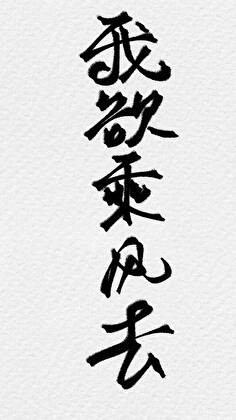 我欲乘风去